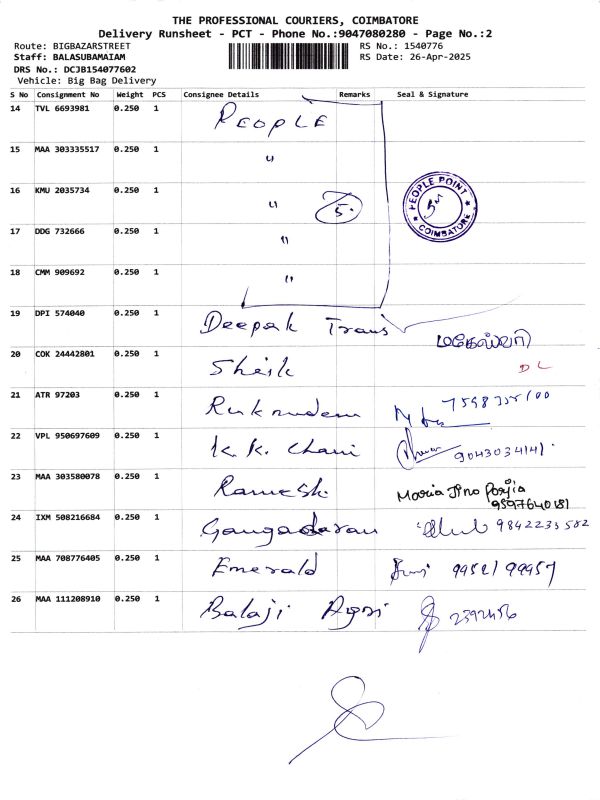 THE PROFESSIONAL COURIERS, COIMBATORE
Delivery Runsheet - PCT - Phone No.:9047080280 - Page No.:2
Route: BIGBAZARSTREET RS No.: 1540776
Staff: BALASUBAMAIAM RS Date: 26-Apr-2025
DRS No.: DCJB154077602
Vehicle: Big Bag Delivery
S No Consignment No Weight PCS Consignee Details Remarks Seal & Signature
14 TVL 6693981 0.250 1 PEOPLE
15 MAA 303335517 0.250 1 "
16 KMU 2035734 0.250 1 " 5.
PEOPLE POINT
COIMBATORE
17 DDG 732666 0.250 1 "
18 CMM 909692 0.250 1 "
19 DPI 574040 0.250 1 Deepak Trans மகேஸ்வரி
20 COK 24442801 0.250 1 Sheik DL
21 ATR 97203 0.250 1
22 VPL 950697609 0.250 1 K.K. Chani 9043034141.
23 MAA 303580078 0.250 1 Ramesh Maria Jino
9597640181
24 IXM 508216684 0.250 1 Gangadaran 9842233582
25 MAA 708776405 0.250 1 Emerald 99957
26 MAA 111208910 0.250 1 Balaji Agri 2392456